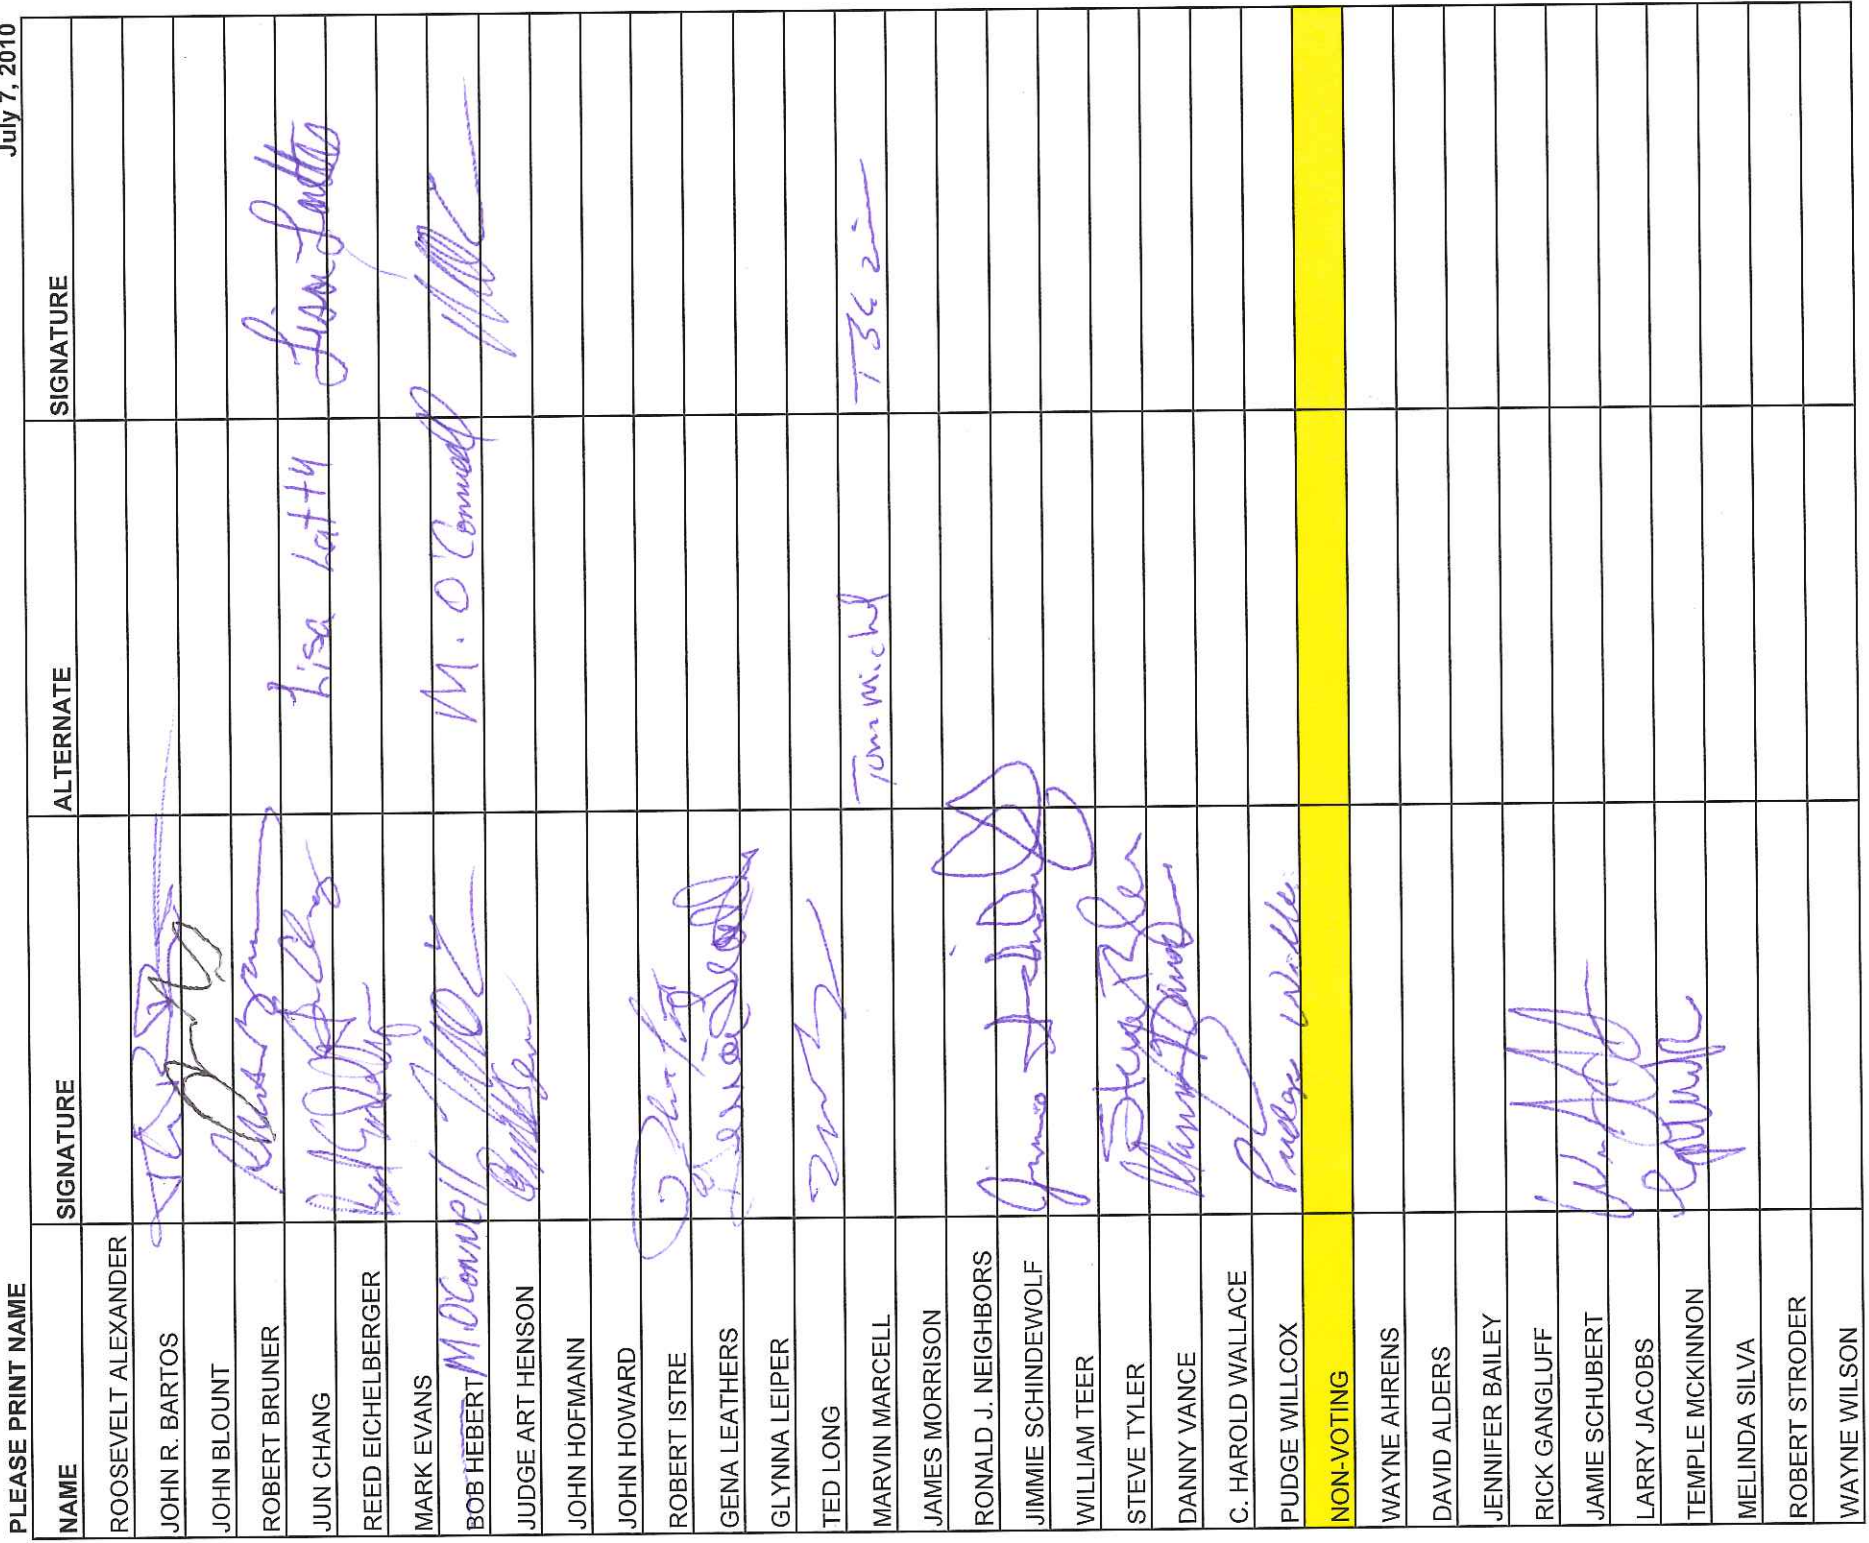 July 7, 2010
PLEASE PRINT NAME
NAME SIGNATURE ALTERNATE SIGNATURE
ROOSEVELT ALEXANDER
JOHN R. BARTOS
JOHN BLOUNT
ROBERT BRUNER
JUN CHANG Lisa Latty Lisa Latty
REED EICHELBERGER
MARK EVANS
BOB HEBERT M. O'Connell M. O'Connell
JUDGE ART HENSON
JOHN HOFMANN
JOHN HOWARD
ROBERT ISTRE
GENA LEATHERS Gena Leathers
GLYNNA LEIPER
TED LONG
MARVIN MARCELL Tom Michel
JAMES MORRISON
RONALD J. NEIGHBORS
JIMMIE SCHINDEWOLF Jimmie Schindewolf
WILLIAM TEER
STEVE TYLER Steve Tyler
DANNY VANCE Danny Vance
C. HAROLD WALLACE
PUDGE WILLCOX Pudge Willcox
NON-VOTING
WAYNE AHRENS
DAVID ALDERS
JENNIFER BAILEY
RICK GANGLUFF
JAMIE SCHUBERT
LARRY JACOBS
TEMPLE MCKINNON
MELINDA SILVA
ROBERT STRODER
WAYNE WILSON